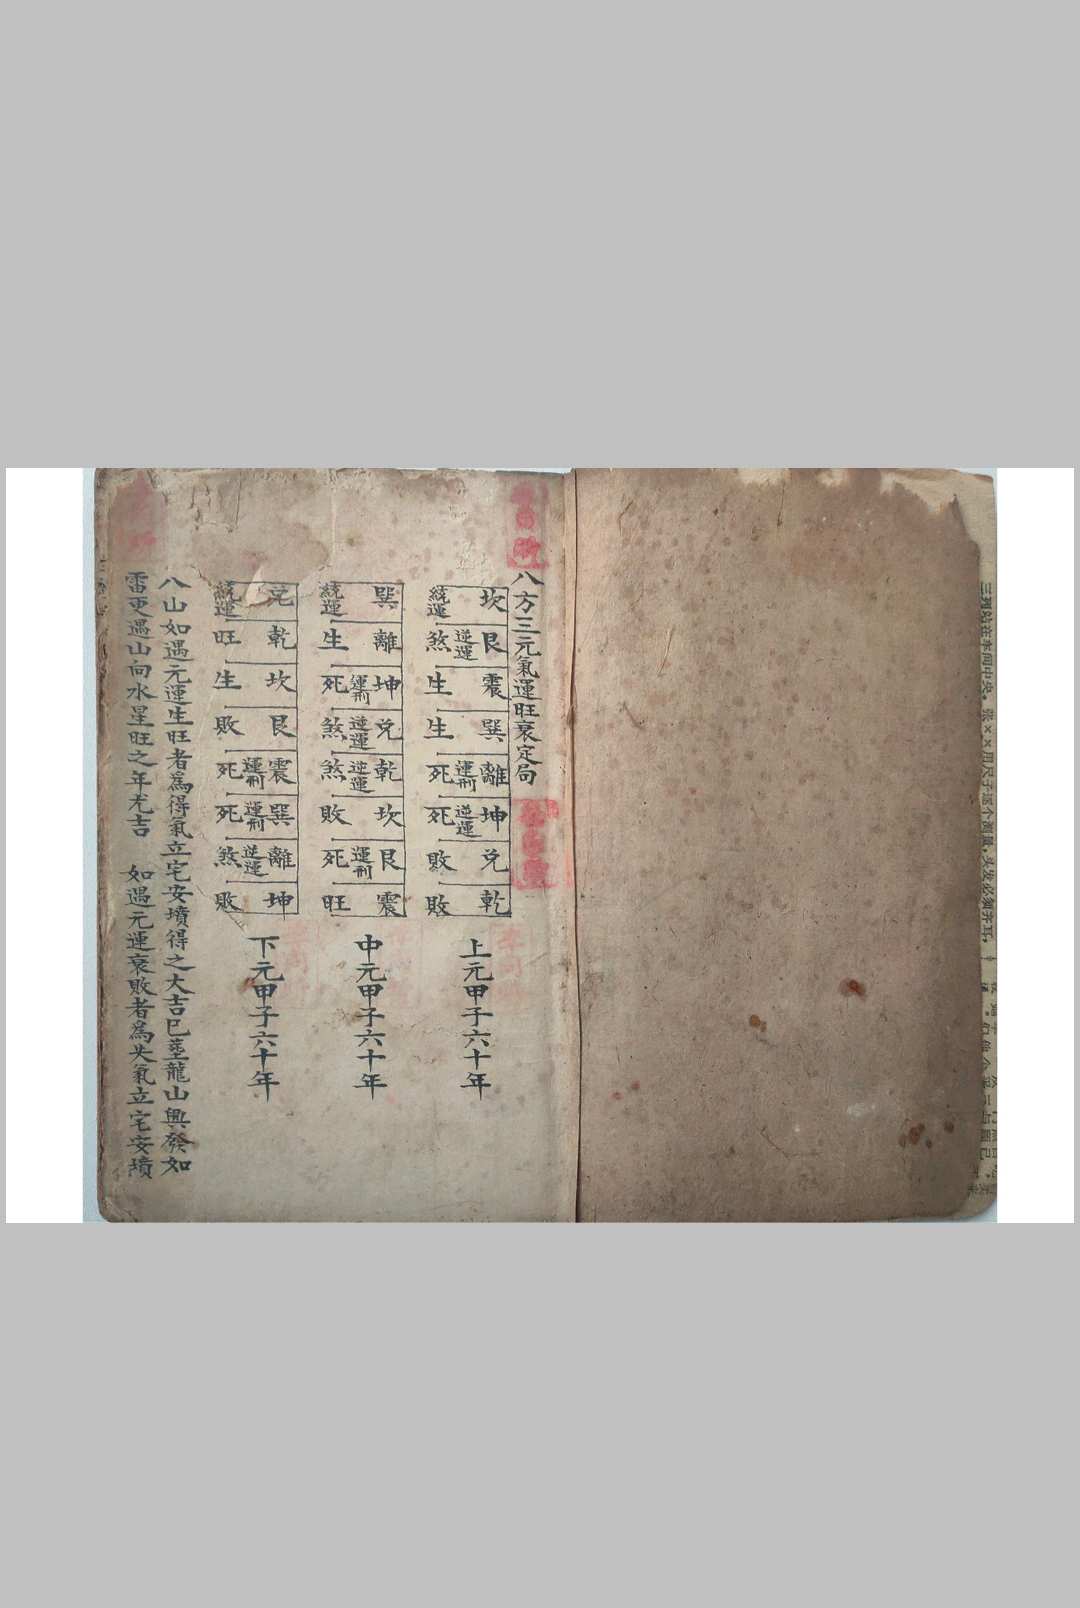 三列站在车间中央。张××用尺子逐个测量,头发必须齐耳,
八方三元氣運旺衰定局
坎 統運
艮 逆運 煞
震 生
巽 生
離 運刑 死
坤 逆運 死
兌 敗
乾 敗
上元甲子六十年
巽 統運
離 生
坤 運刑 死
兌 逆運 煞
乾 逆運 煞
坎 敗
艮 運刑 死
震 旺
中元甲子六十年
兌 統運
乾 旺
坎 生
艮 敗
震 運刑 死
巽 運刑 死
離 逆運 煞
坤 敗
下元甲子六十年
八山如遇元運生旺者為得氣立宅安墳得之大吉已塟龍山興發如
雷更遇山向水星旺之年尤吉 如遇元運衰敗者為失氣立宅安墳